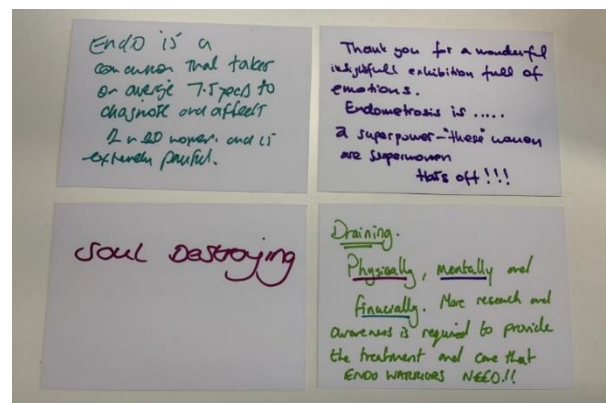 Endo is a
that takes
on average 7.5 years to
diagnose and affects
women. and is
extremely painful.
Thank you for a wonderful
insightfull exhibition full of
emotions.
Endometrosis is .....
a superpower - "these" women
are superwomen
Hats off!!!
Soul Destroying
Draining.
Physically, mentally and
finacially. More research and
awareness is required to provide
the treatment and care that
ENDO WARRIORS NEED!!